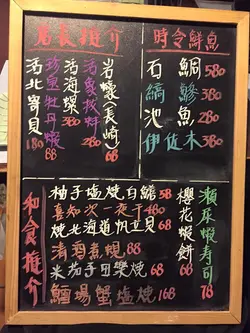 店長推介
岩蠔(長崎) 68
活象拔蚌 380
活海螺 380
牡丹蝦 88
活北寄貝 180
時令鮮魚
石鯛 580
縞鰺 380
池魚 280
伊佐木 380
和食推介
柚子塩焼白鱔 58
喜知次一夜干 480
焼北海道帆立貝 68
清酒煮蜆 88
米茄子田樂焼 68
鱈場蟹塩焼 168
櫻花蝦餅 68
瀨尿蝦壽司 78